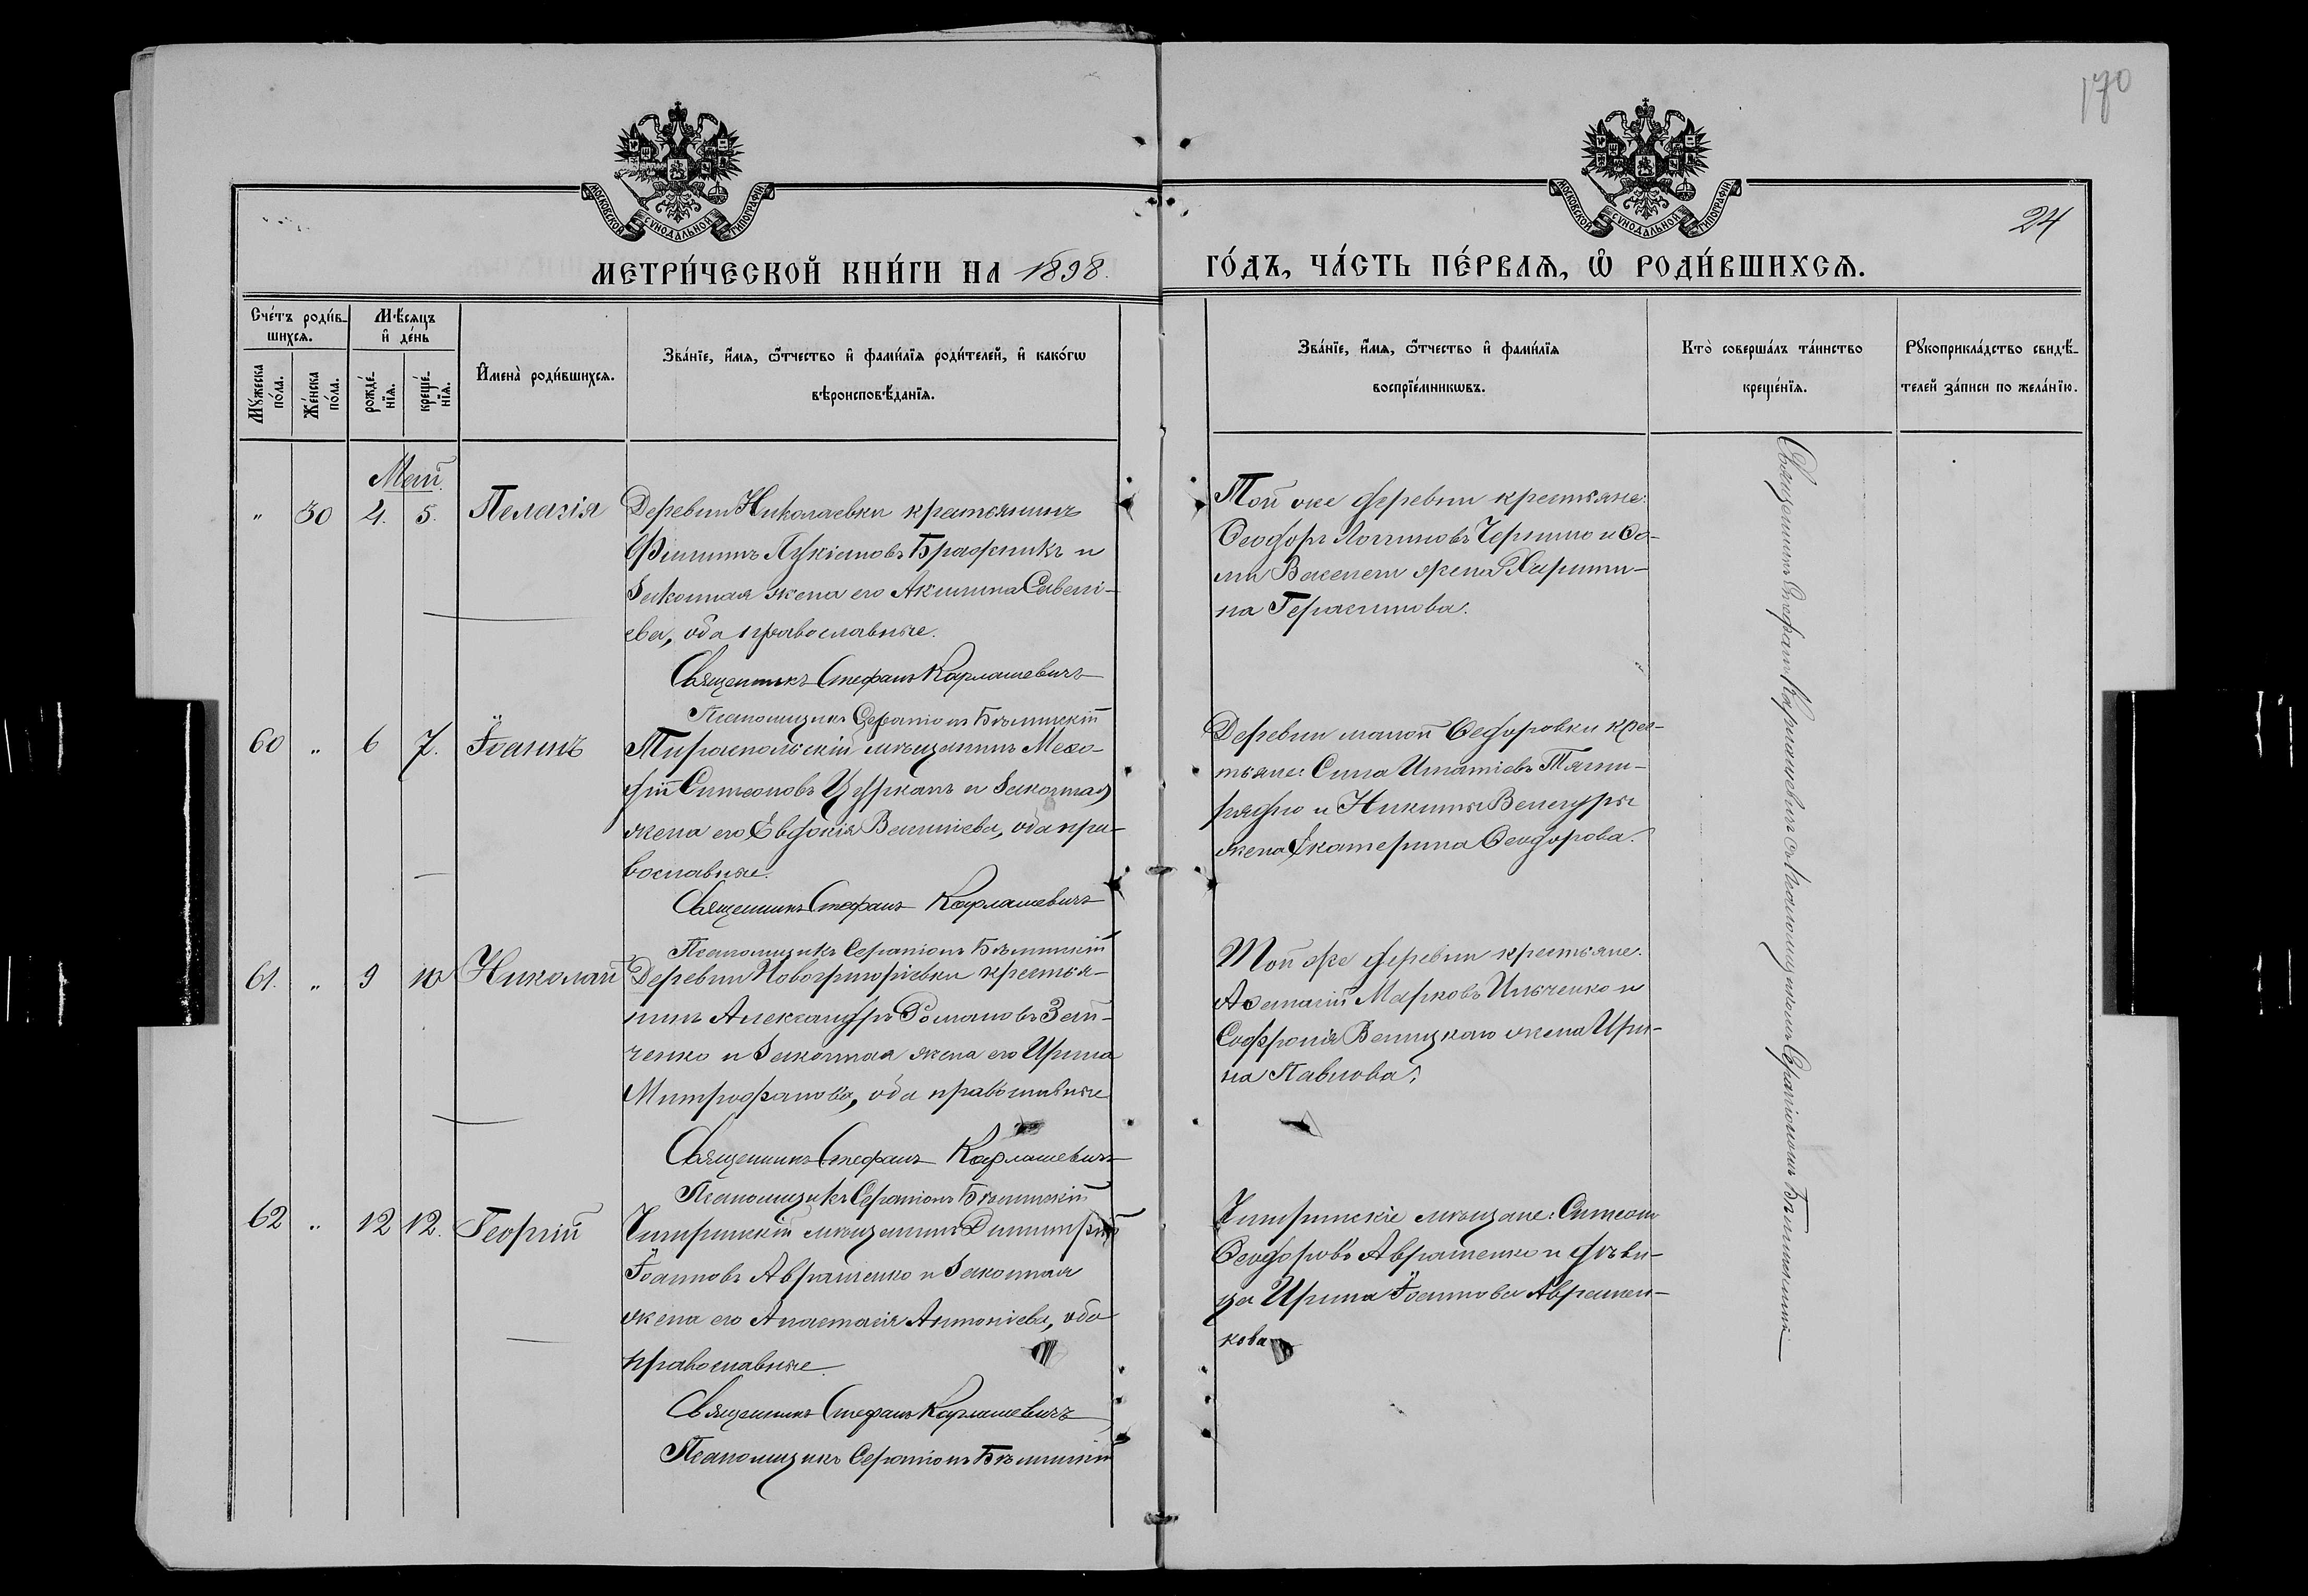 170
МОСКОВСКОЙ СѴНОДАЛЬНОЙ ТИПОГРАФІИ
МОСКОВСКОЙ СѴНОДАЛЬНОЙ ТИПОГРАФІИ
24
МЕТРИ́ЧЕСКОЙ КНИ́ГИ НА 1898.
ГО́ДЪ, ЧА́СТЬ ПЕ́РВАЯ, Ѡ РОДИ́ВШИХСЯ.
Сче́тъ роди́в-
шихся.
Мѣ́сяцъ
и де́нь
Му́жеска
по́ла.
Же́нска
по́ла.
рожде́-
нїя.
креще́-
нїя.
И҆мена̀ роди́вшихся.
Зва́нїе, и҆́мя, ѻ҆́тчество и҆ фами́лїя роди́телей, и҆ како́гѡ
вѣроисповѣ́данїя.
Зва́нїе, и҆́мя, ѻ҆́тчество и҆ фами́лїя
воспрїе́мникѡвъ.
Кто̀ соверша́лъ та́инство
креще́нїя.
Рукоприкла́дство свидѣ́-
телей за́писи по жела́нїю.
Май.
„ 30 4. 5. Пелагія
Деревни Николаевки крестьянинъ
Филиппъ Лукіановъ Бражникъ и
законная жена его Акилина Савелі-
ева, оба православные.
Священникъ Стефанъ Карлашевичъ
Псаломщикъ Серапіонъ Бѣлинскій
Той же деревни крестьяне:
Ѳеодоръ Логгиновъ Черниш и Ѳо-
мы жена Харити-
на Герасимова.
60 „ 6 7. Іоаннъ
Тираспольскій мѣщанинъ Меѳо-
дій Симеоновъ Цурканъ и законная
жена его Евдокія, оба пра-
вославные.
Священникъ Стефанъ Карлашевичъ
Псаломщикъ Серапіонъ Бѣлинскій
Деревни малой Ѳедоровки крес-
тьяне: Сила Игнатіевъ
и Никиты Венгуры
жена Екатерина Ѳеодорова.
61. „ 9 10 Николай
Деревни Новогригоріевки крестья-
нинъ Александръ Романовъ Зай-
ченко и законная жена его Ирина
Митрофанова, оба православные
Священникъ Стефанъ Карлашевичъ
Псаломщикъ Серапіонъ Бѣлинскій
Той же деревни крестьяне:
Аѳанасій Марковъ Ильченко и
Софронія Велицкаго жена Ири-
на Павлова.
62 „ 12 12. Георгій
мѣщанинъ Димитрій
Іоанновъ Авраменко и законная
жена его Анастасія Антоніева, оба
православные.
Священникъ Стефанъ Карлашевичъ
Псаломщикъ Серапіонъ Бѣлинскій
мѣщане: Симеонъ
Ѳеодоровъ Авраменко и дѣви-
ца Ирина Іоаннова Аврамен-
кова
Священникъ Стефанъ Карлашевичъ съ псаломщикомъ Серапіономъ Бѣлинскимъ